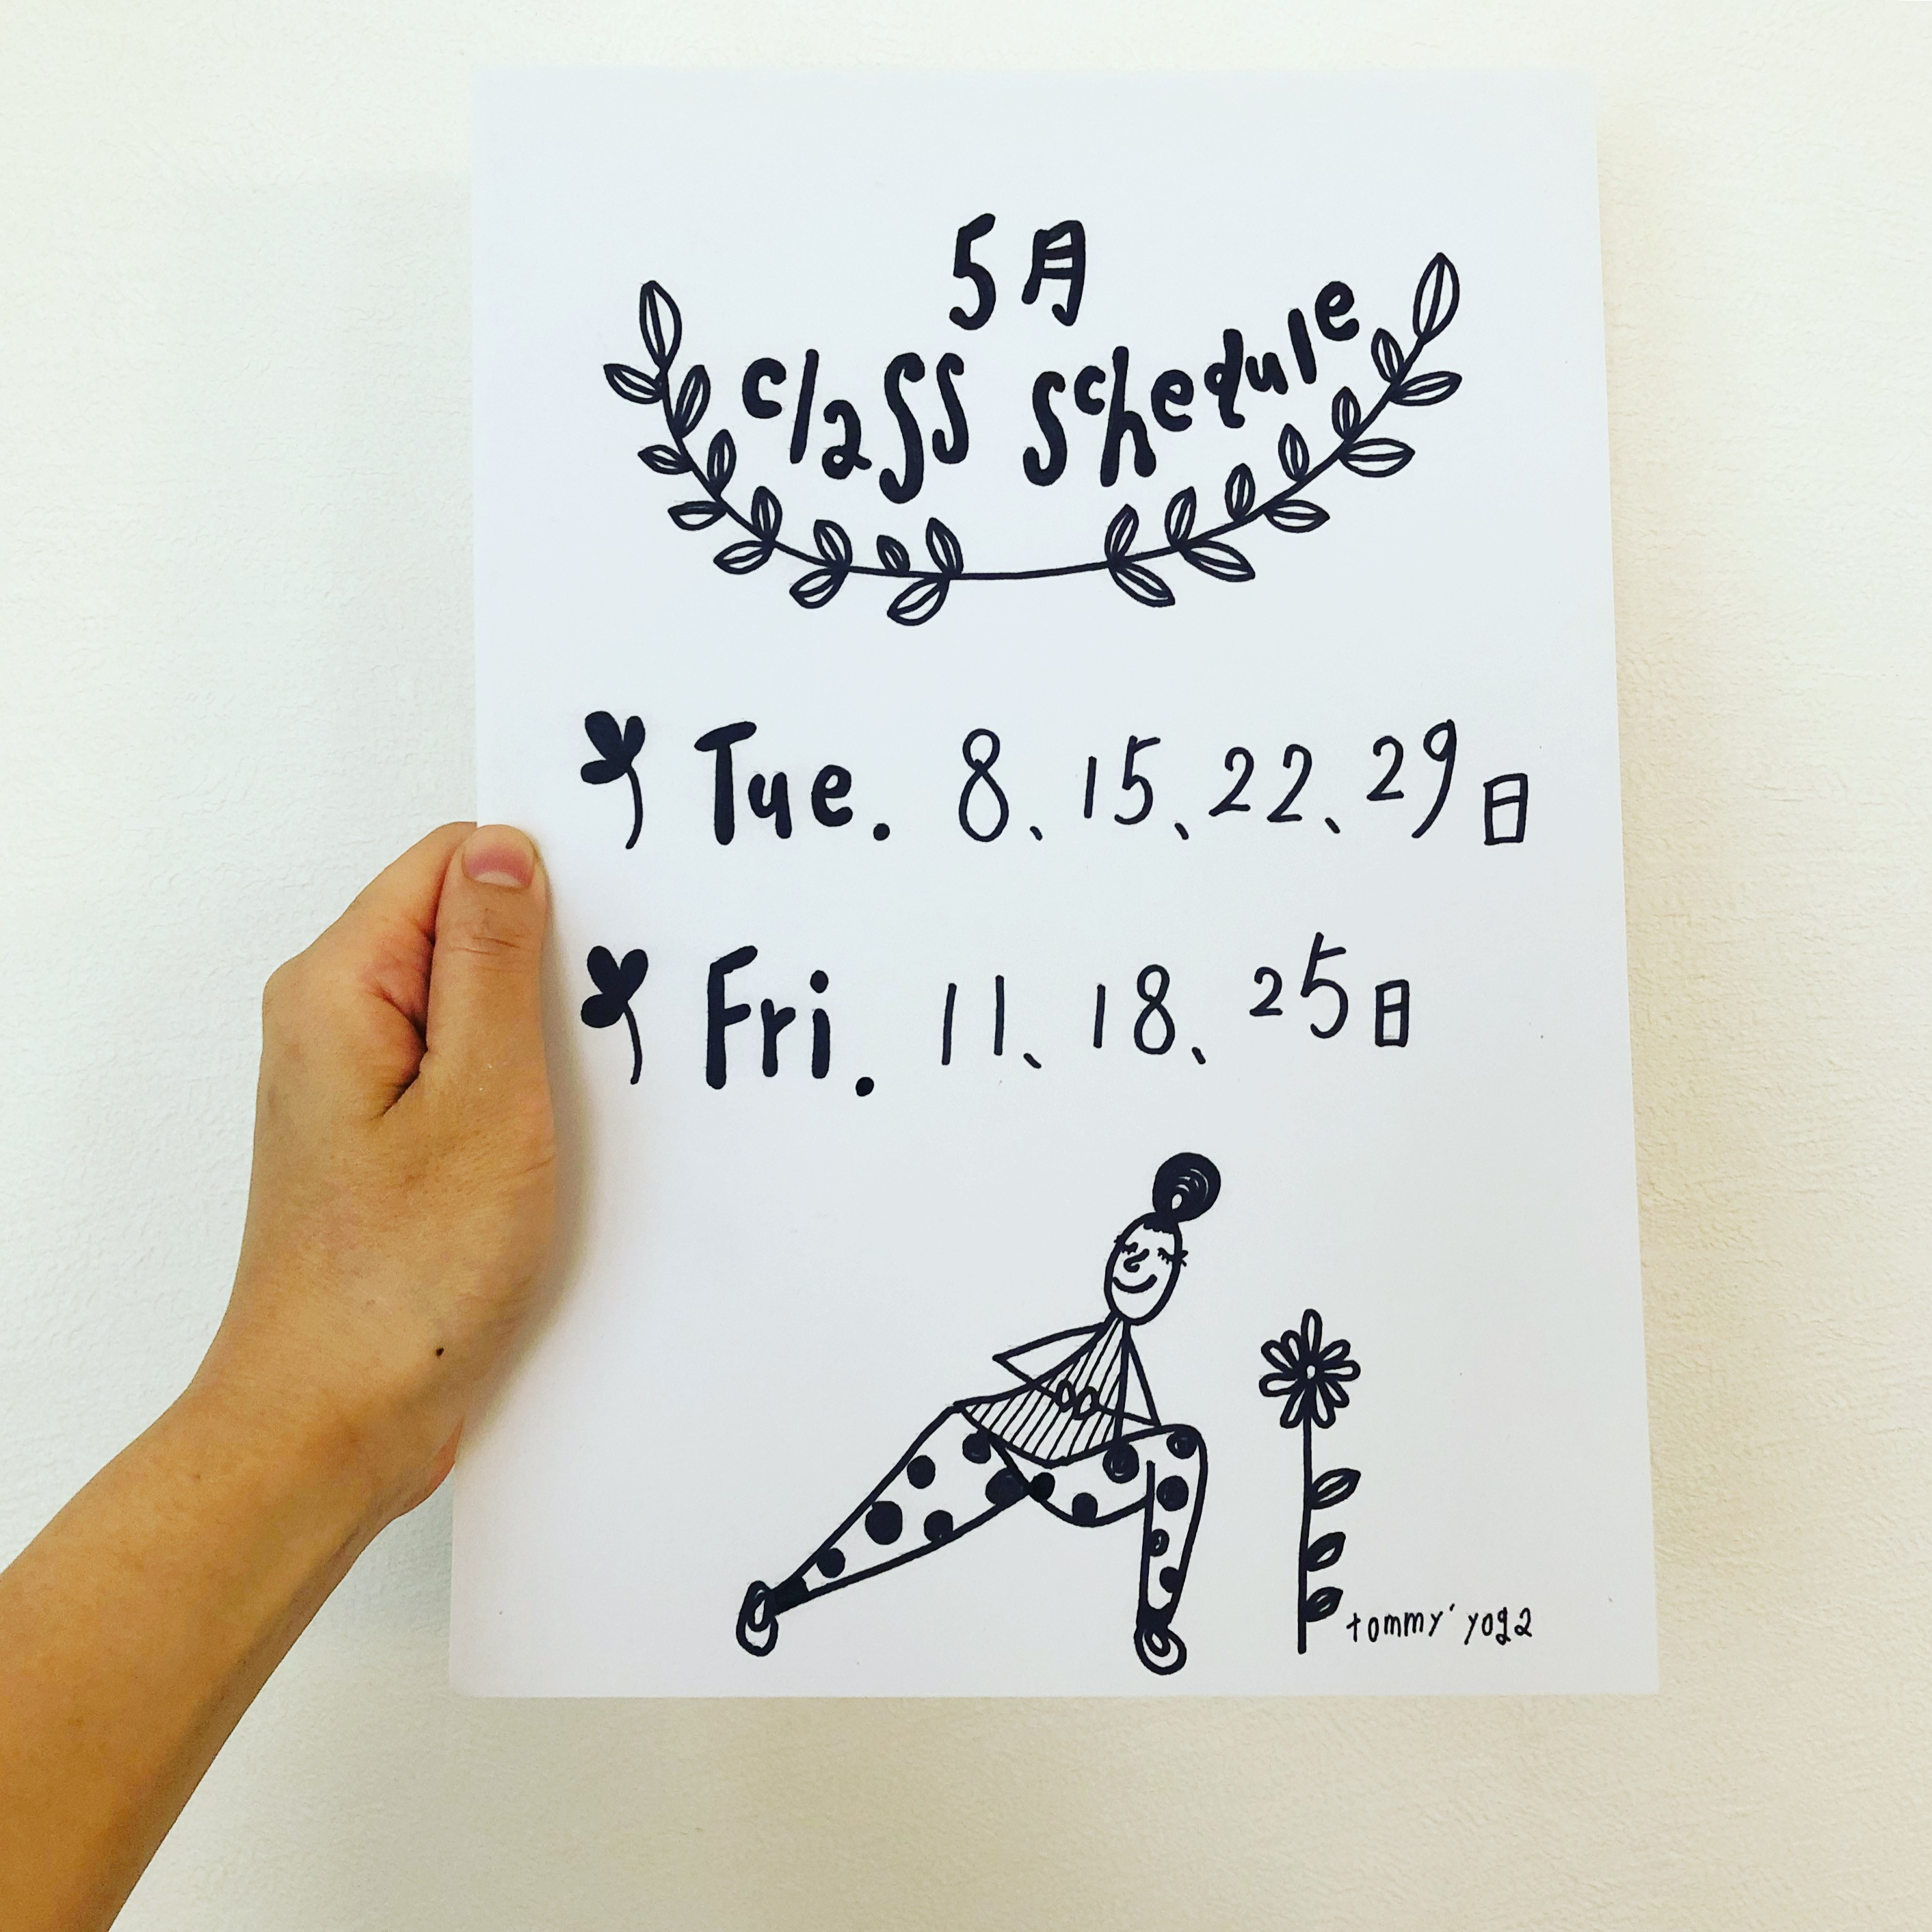 5月
class schedule
Tue. 8、15、22、29日
Fri. 11、18、25日
tommy' yoga